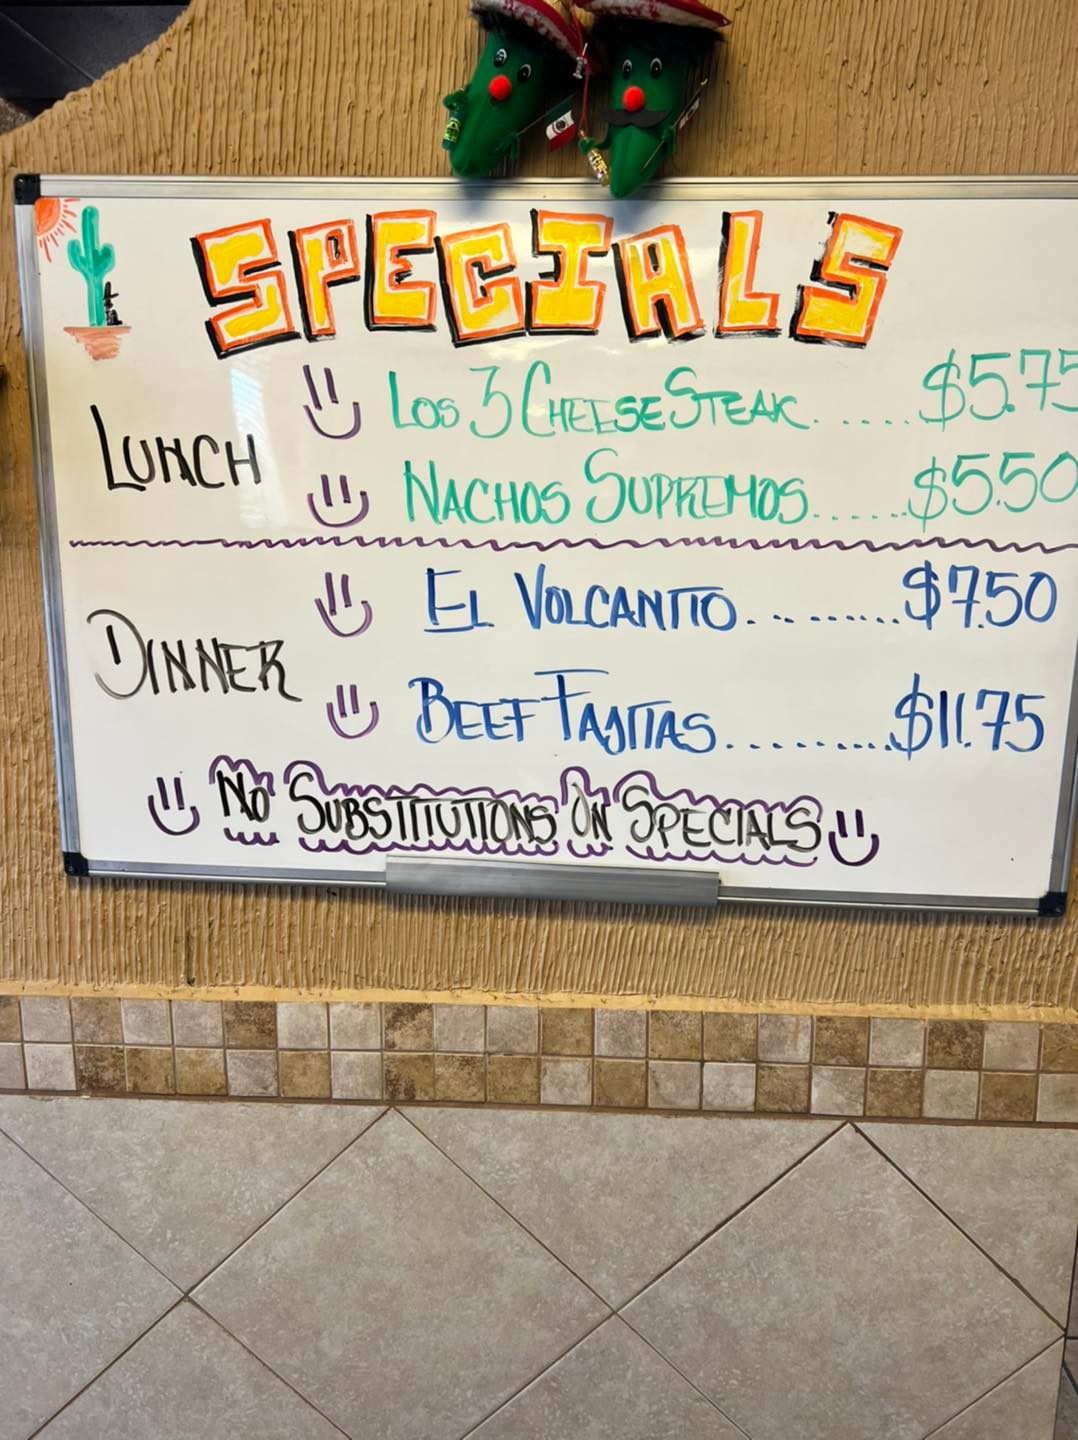 SPECIALS
LUNCH
LOS 3 CHEESE STEAK...... $5.75
NACHOS SUPREMOS...... $5.50
DINNER
EL VOLCANITO.......... $7.50
BEEF FAJITAS.......... $11.75
NO SUBSTITUTIONS ON SPECIALS